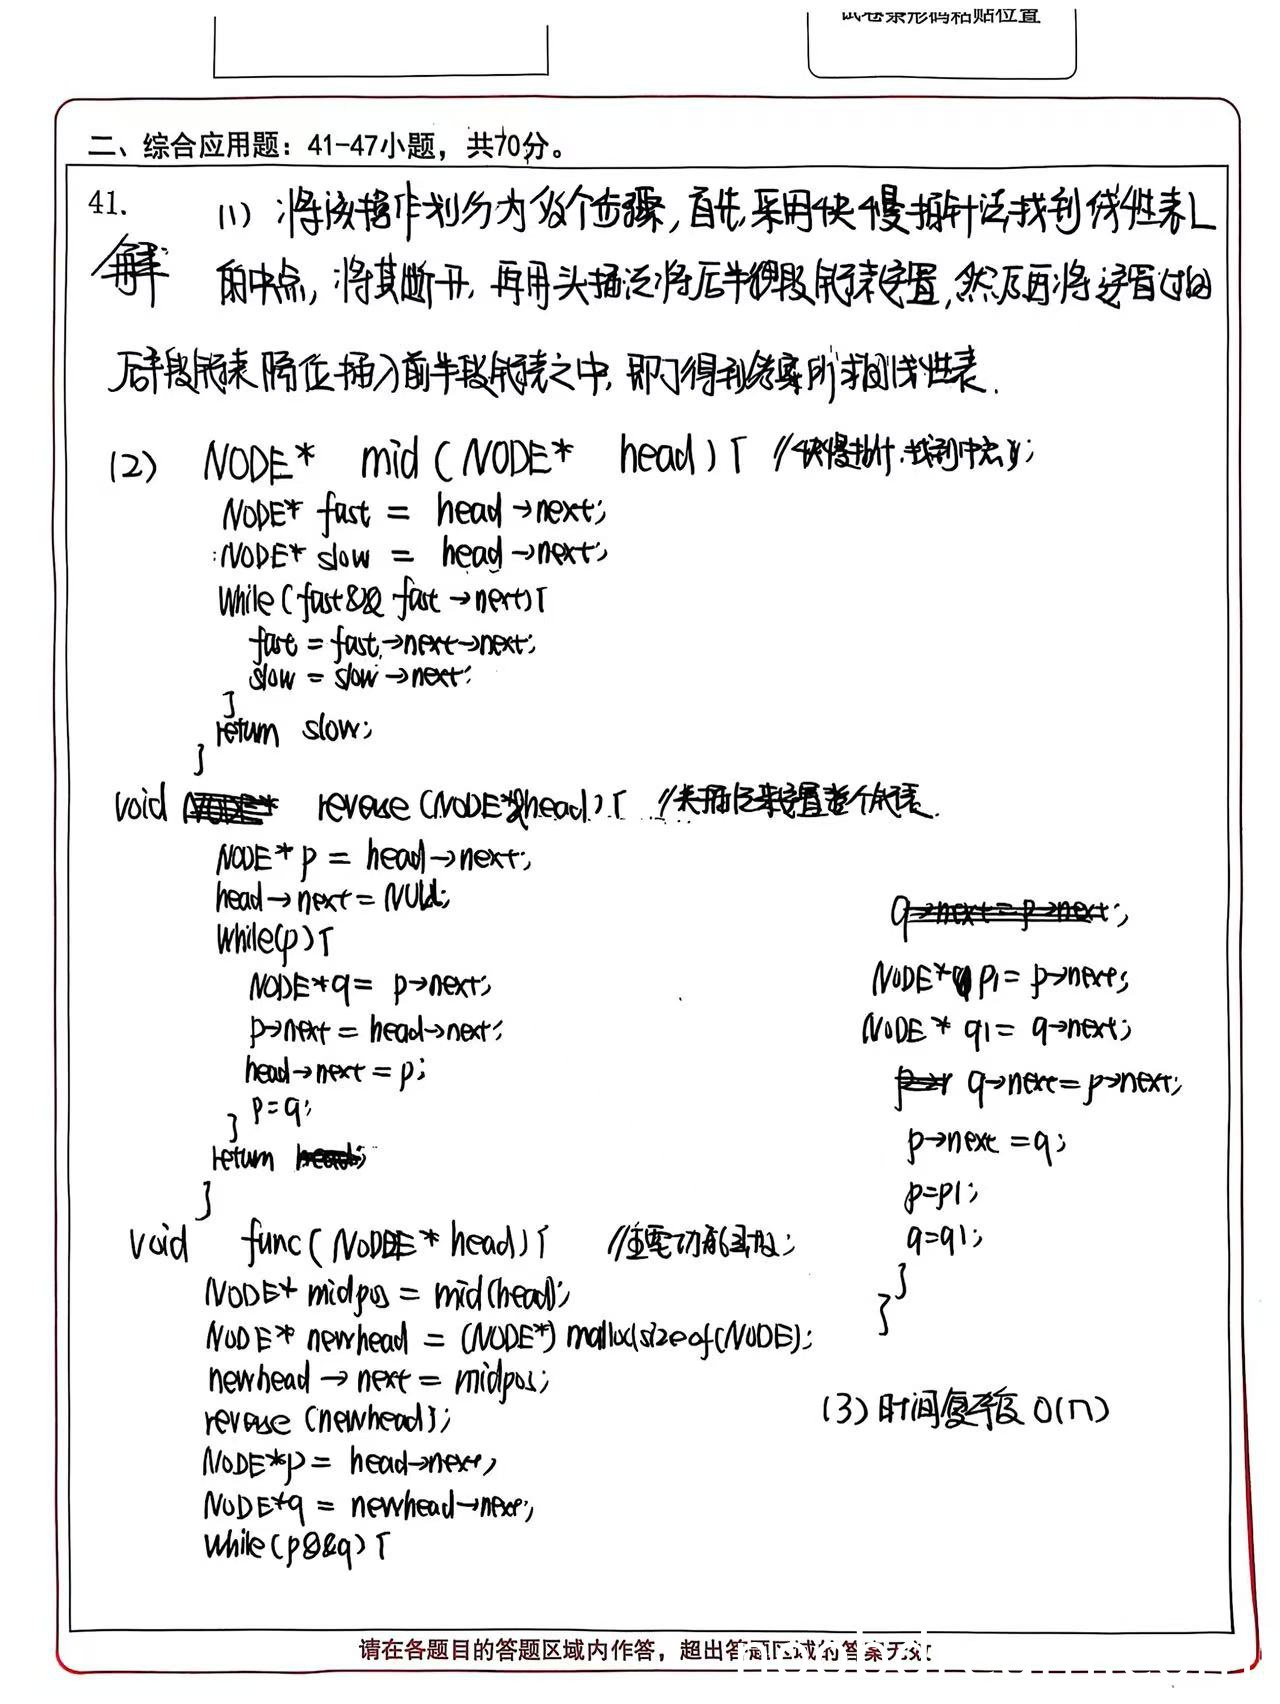 试卷条形码粘贴位置
二、综合应用题：41-47小题，共70分。
41. (1) 将该操作划分为 个步骤，首先采用快慢指针法找到线性表L
解 的中点，将其断开，再用头插法将后半段链表逆置，然后再将逆置过的
后半段链表隔位插入前半段链表之中，即可得到答案所求的线性表.
(2) NODE* mid (NODE* head) { //快慢指针，找到中点;
NODE* fast = head→next;
NODE* slow = head→next;
while (fast&& fast→next){
fast = fast→next→next;
slow = slow→next;
}
return slow;
}
void reverse (NODE*&head) { //头插法来逆置整个链表.
NODE* p = head→next;
head→next = NULL;
while(p) {
NODE* q = p→next;
p→next = head→next;
head→next = p;
p=q;
}
return
}
void func( NODE* head) { //主要功能函数;
NODE* midpos = mid(head);
NODE* newhead = (NODE*) malloc(sizeof(NODE);
newhead → next = midpos;
reverse (newhead);
NODE* p = head→next,
NODE* q = newhead→next;
while(p&&q) {
q→next = p→next;
NODE* p1 = p→next;
NODE* q1 = q→next;
q→next = p→next;
p→next = q;
p=p1;
q=q1;
}
}
(3) 时间复杂度 O(n)
请在各题目的答题区域内作答，超出答题区域的答案无效